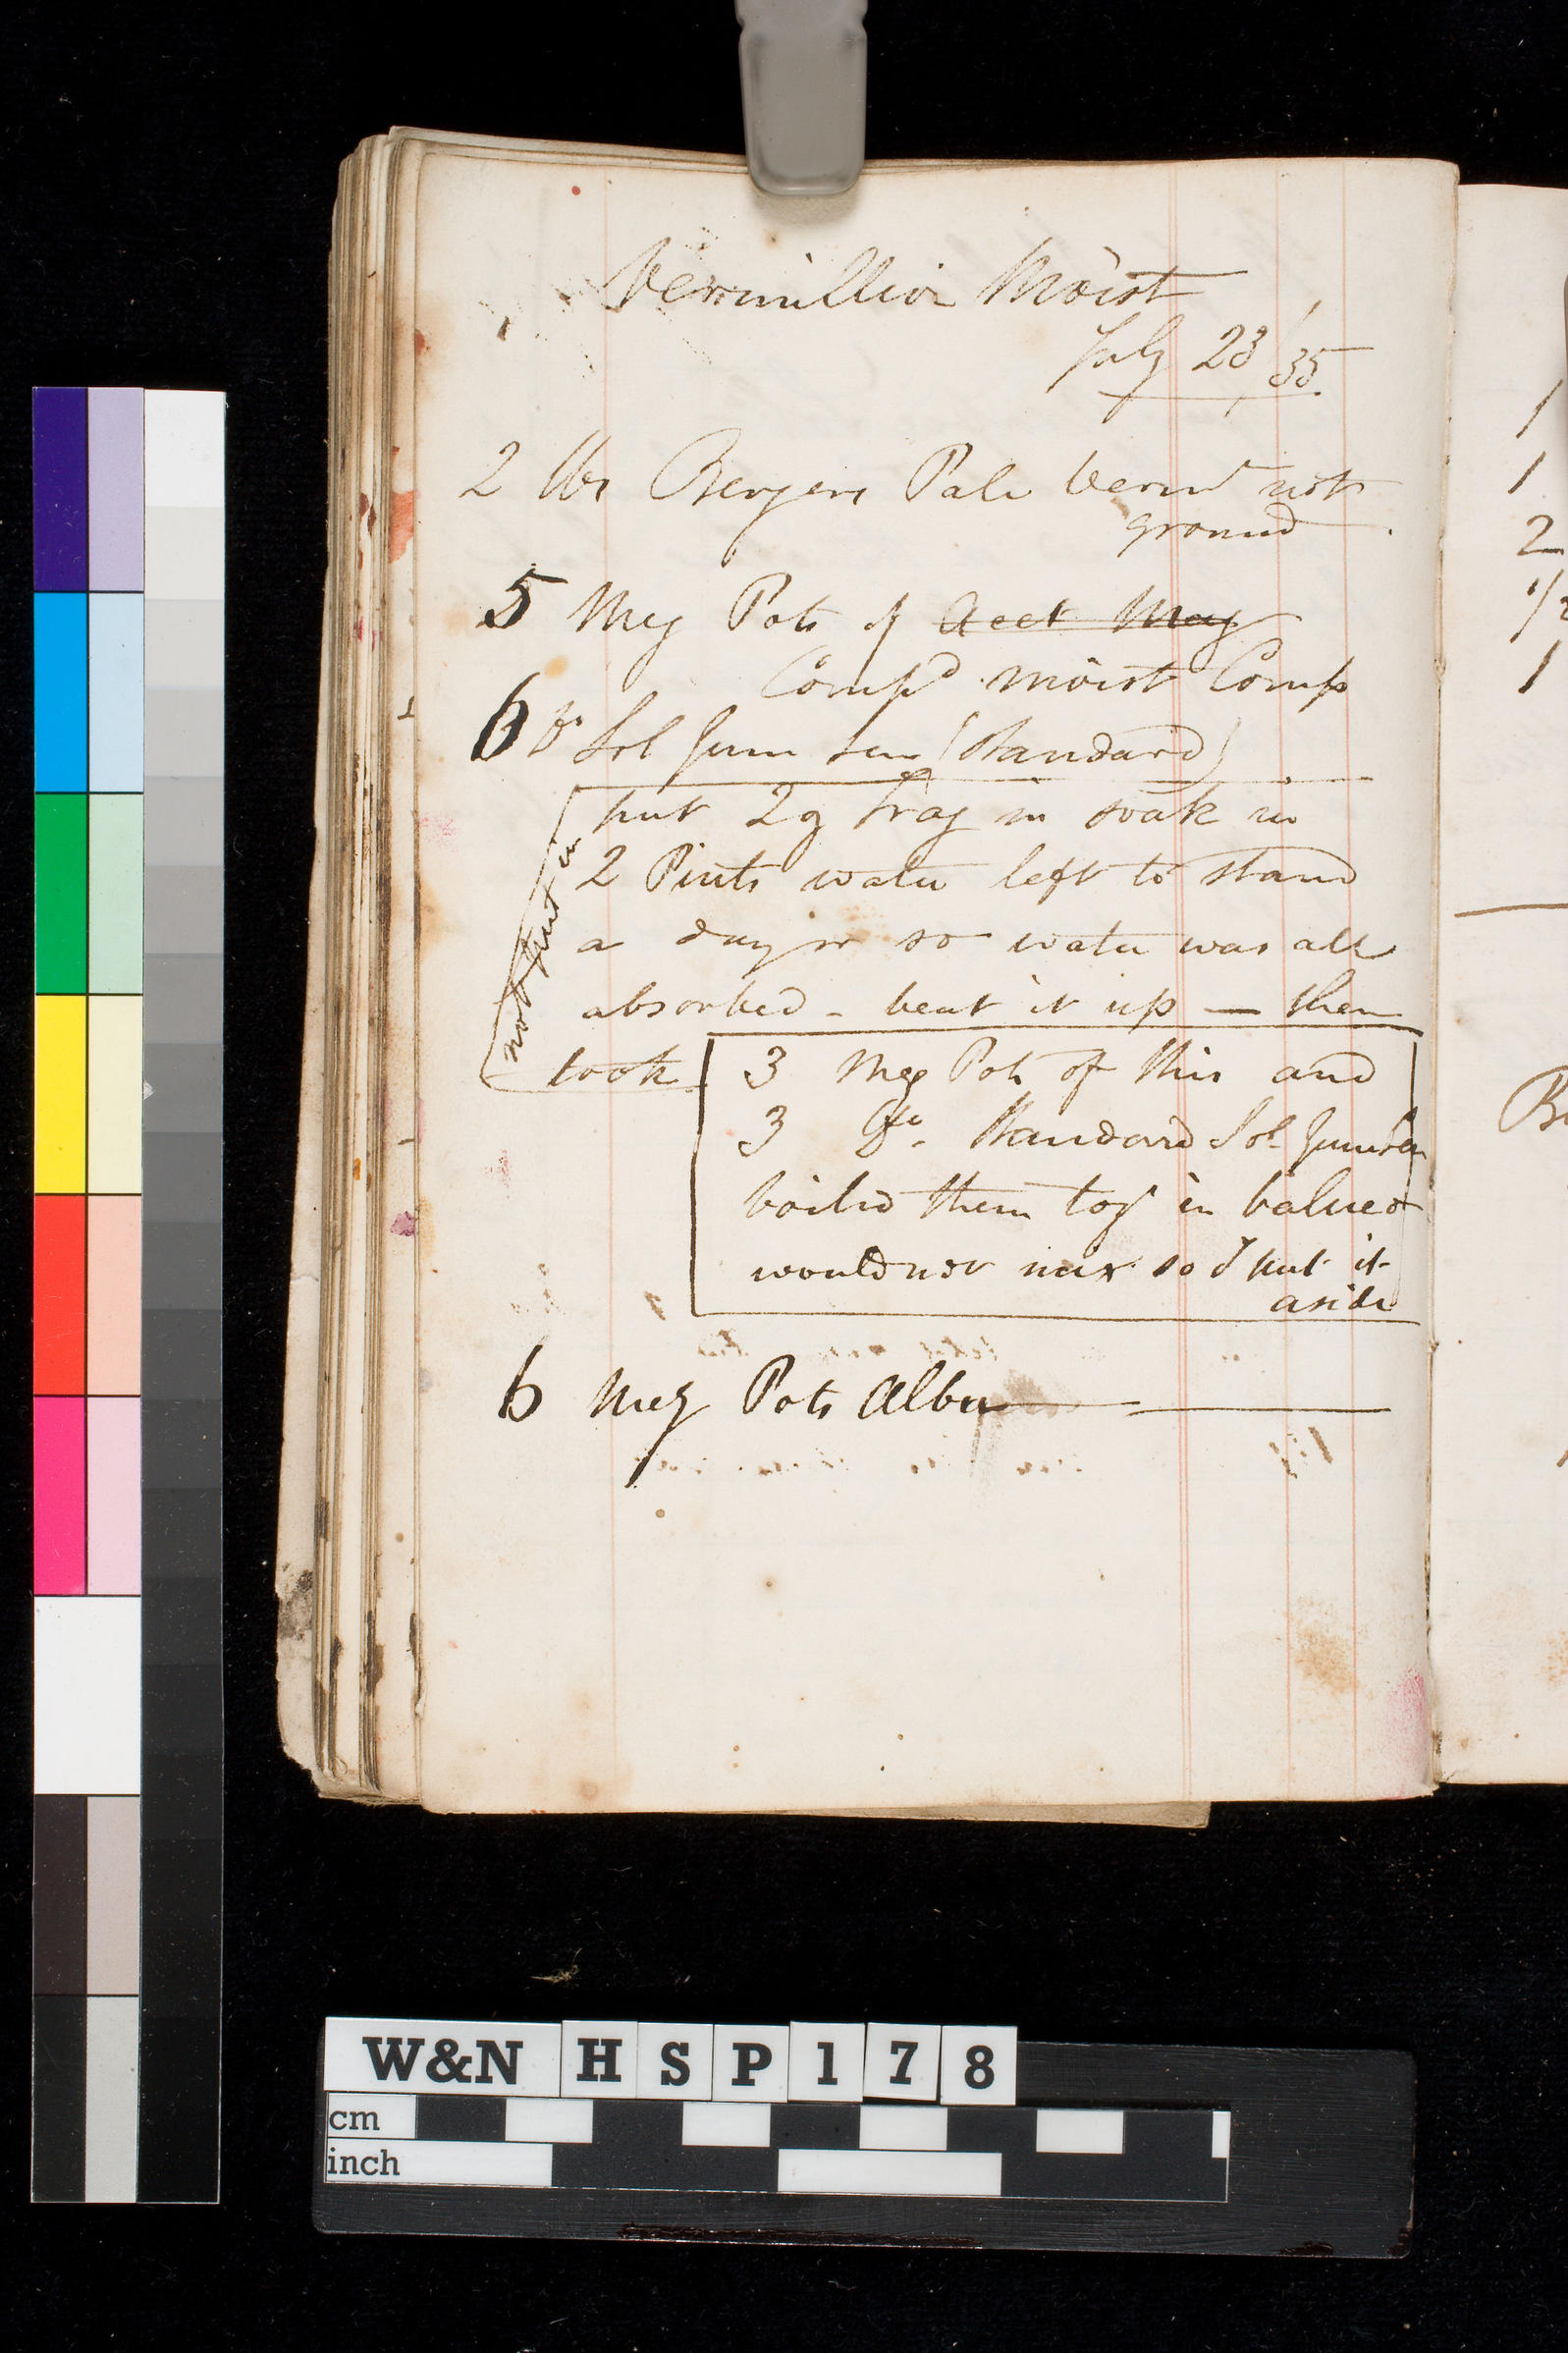 Vermillion Moist
July 23/35
2 lbs Bergers Pale Verm^n not
ground
5 Meg Pots of Acet Meg
Comp^d moist Comp
6 D^o Sol Gum Sen (Standard)
put 2 g Trag in soak in
2 Pints water left to stand
a day or so water was all
absorbed - beat it up — then
took
not put in
3 Meg Pots of this and
3 D^o. Standard Sol Gum Sen
boiled them tog^r in balneo
would not mix so I put it
aside
6 Meg Pots Albu
1
1
2
1/2
1
B
W&N HSP178
cm
inch